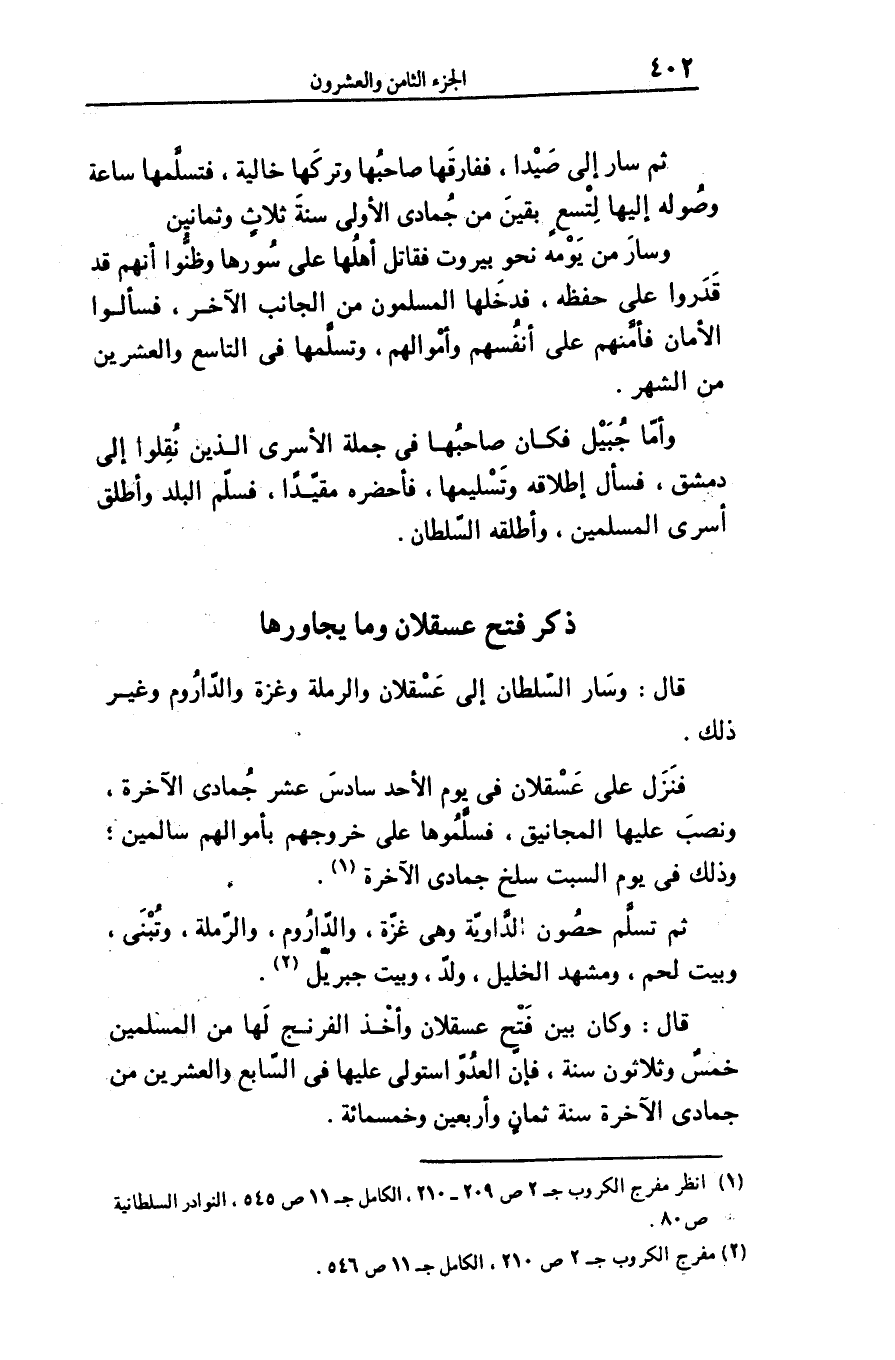 ٤٠٢
الجزء الثامن والعشرون
ثم سار إلى صَيْدا ، ففارقَها صاحبُها وتركَها خالية ، فتسلَّمها ساعة
وصُوله إليها لِتْسعٍ بقينَ من جُمادى الأولى سنةَ ثلاثٍ وثمانين
وسارَ من يَوْمه نحو بيروت فقاتل أهلُها على سُورها وظنُّوا أنهم قد
قَدَروا على حفظه ، فدخَلها المسلمون من الجانب الآخـر ، فسألـوا
الأمان فأمَّنهم على أنفُسهم وأمْوالهم ، وتسلَّمها فى التاسع والعشرين
من الشهر .
وأمّا جُبَيْل فكـان صاحبُهـا فى جملة الأسرى الـذين نُقِلوا إلى
دمشق ، فسأل إطلاقه وتَسْليمها ، فأحضره مقيّـدًا ، فسلّم البلد وأطلق
أسرى المسلمين ، وأطلقه السّلطان .
ذكر فتح عسقلان وما يجاورها
قال : وسَار السّلطان إلى عَسْقلان والرملة وغزة والدّارُوم وغيـر
ذلك .
فنَزَل على عَسْقلان فى يوم الأحد سادسَ عشر جُمادى الآخرة ،
ونصبَ عليها المجانيق ، فسلَّمُوها على خروجهم بأموالهم سالمين ؛
وذلك فى يوم السبت سلخ جمادى الآخرة (١) .
ثم تسلَّم حصُون الدَّاويّة وهى غزّة ، والدّارُوم ، والرّملة ، وتُبْنَى ،
وبيت لحم ، ومشهد الخليل ، ولدّ ، وبيت جبريّل (٢) .
قال : وكان بين فَتْح عسقلان وأخْـذ الفرنـج لَها من المسلمين
خمسٌ وثلاثون سنة ، فإنّ العدُوّ استولى عليها فى السّابع والعشرين من
جمادى الآخرة سنة ثمانٍ وأربعين وخمسمائة .
(١) انظر مفرج الكروب جـ ٢ ص ٢٠٩ ـ ٢١٠ ، الكامل جـ ١١ ص ٥٤٥ ، النوادر السلطانية
ص ٨٠ .
(٢) مفرج الكروب جـ ٢ ص ٢١٠ ، الكامل جـ ١١ ص ٥٤٦ .